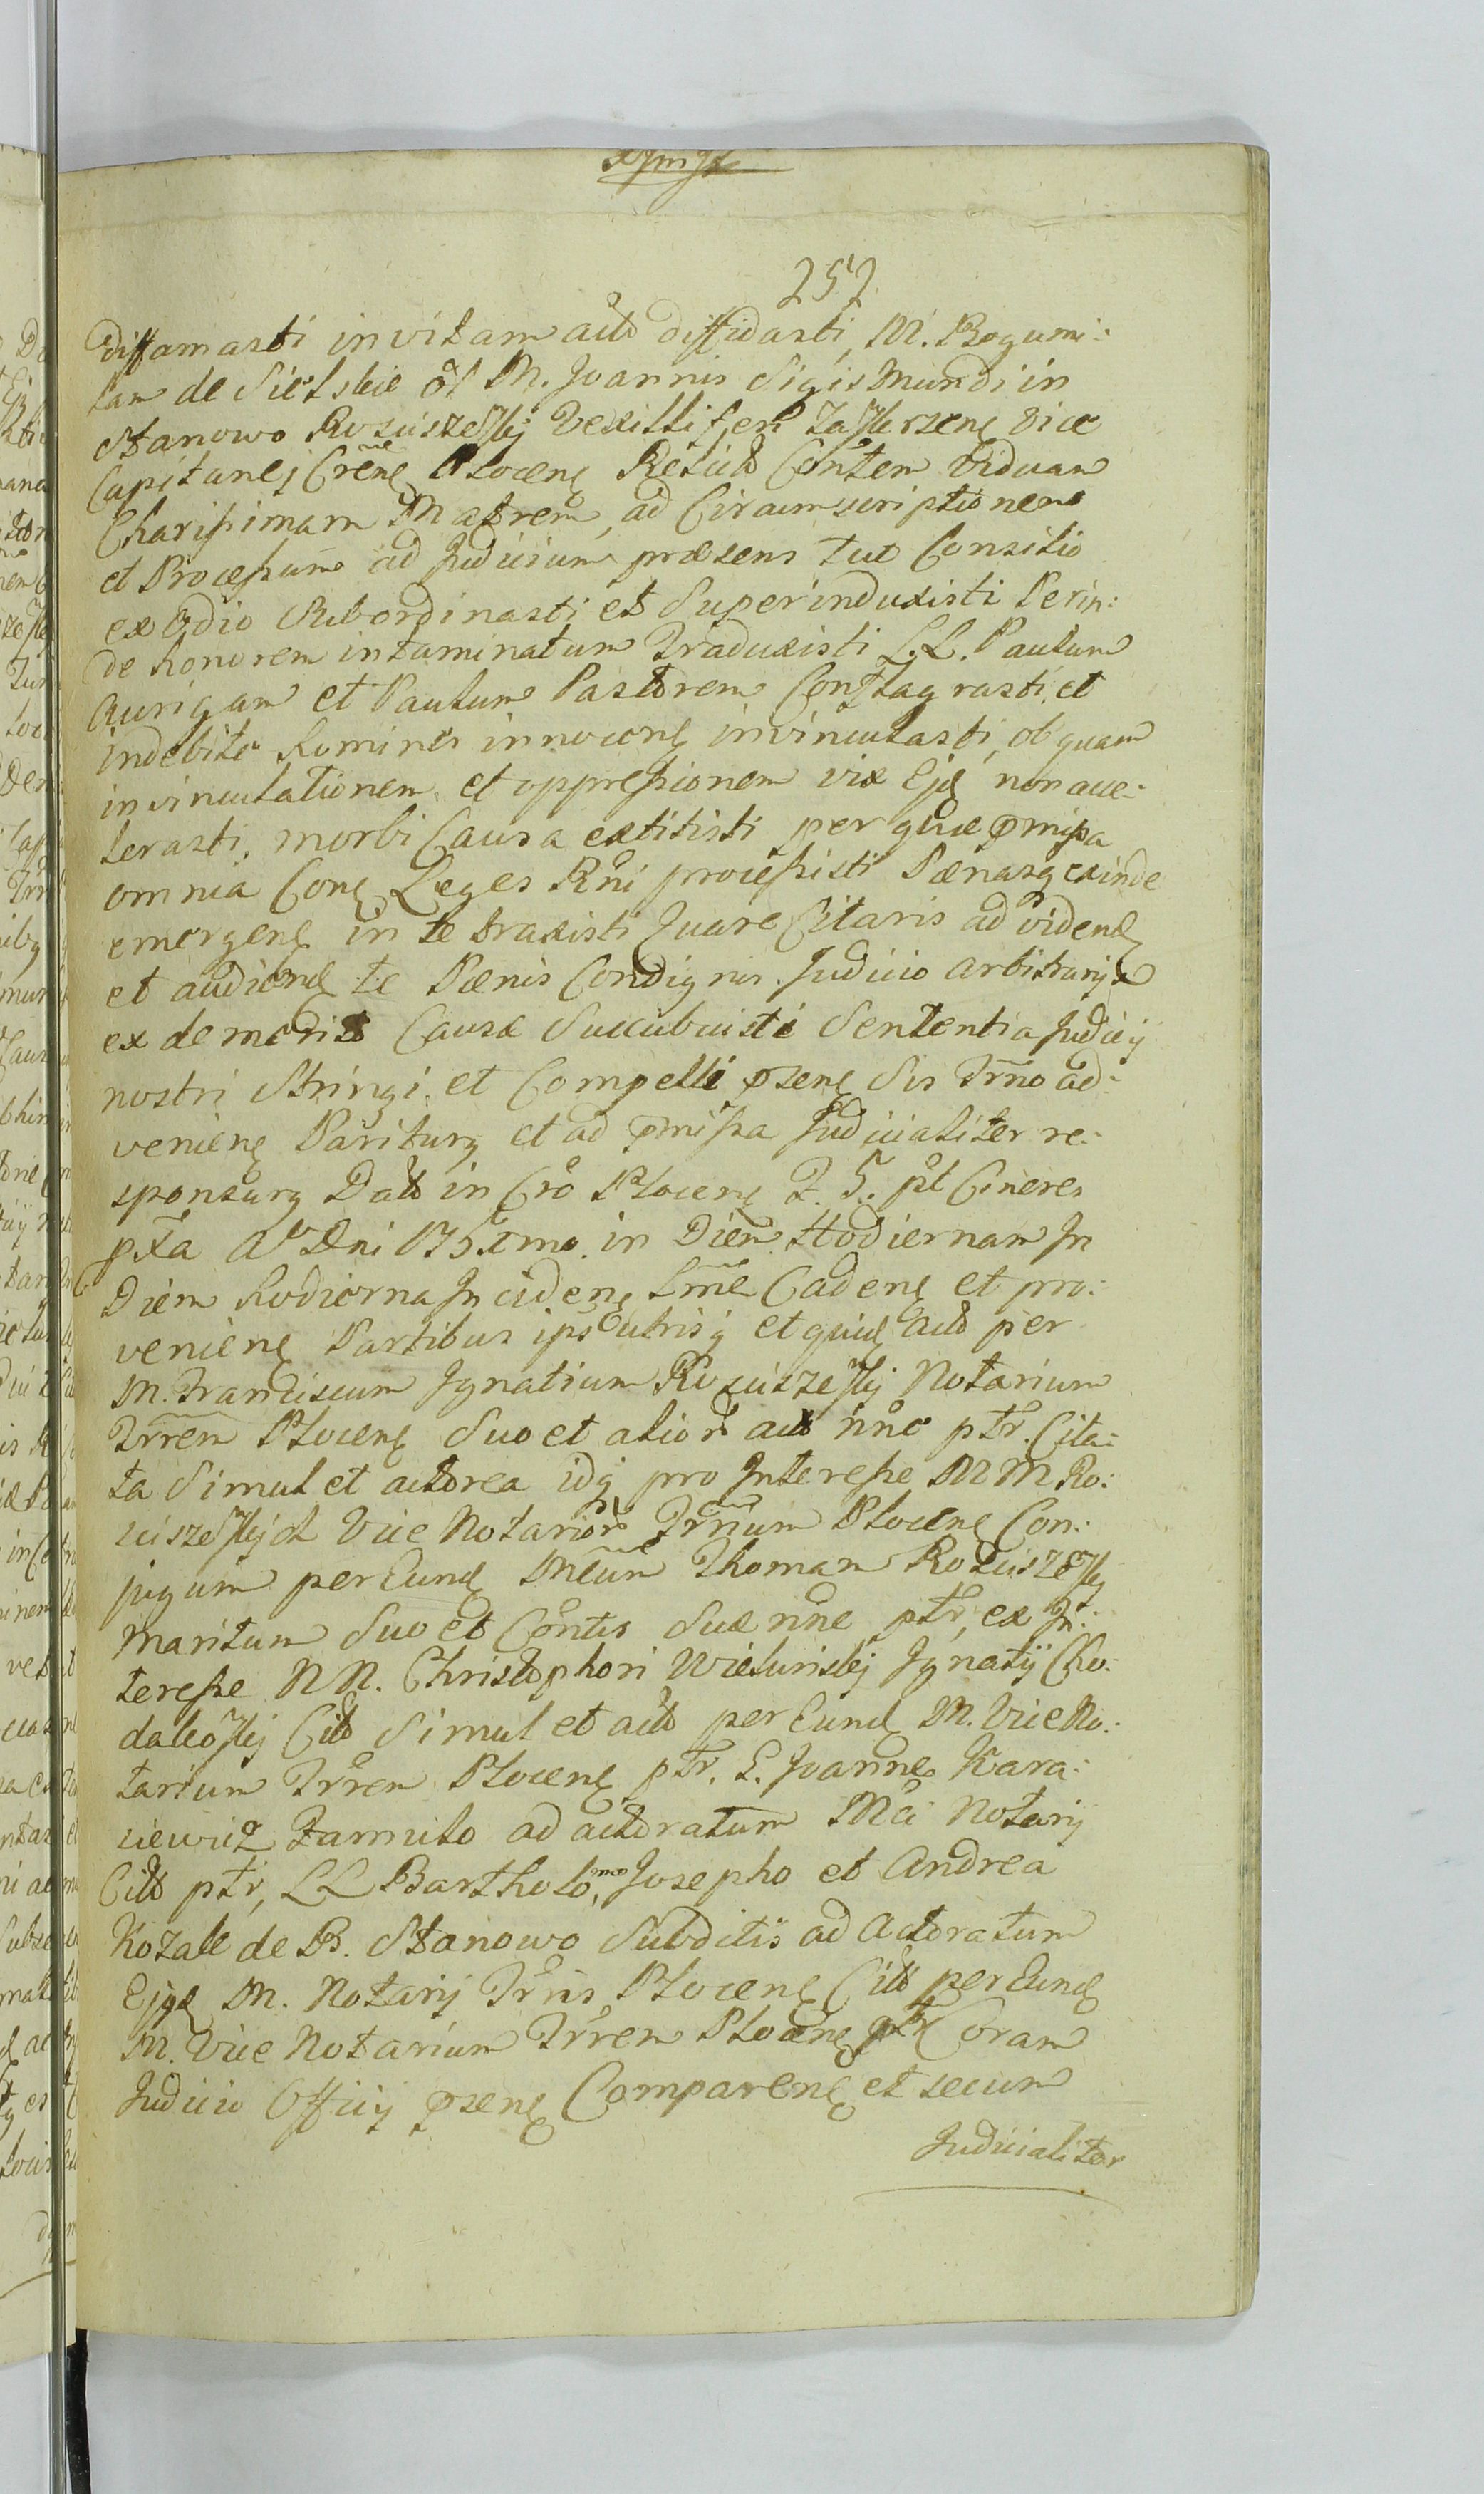 252
diffamasti invitam actô diffidasti, M. Bogumi:
lam de Sielskie ol M. Joannis Sigismundi in
Stanowo Rosciszesky Vexilliferi Zaskrzenẽ Vice
Capitanej Crẽnẽ Plocenẽ Relictô Cõntem Viduam
Charissimam Matrem, ad Circumscriptionem
et Processum ad Judicium præsens tuo Consilio
ex Odio Subordinasti et Superinduxisti Perin:
de honorem intaminatum Traduxisti L.L. Paulum
Aurigam et Paulum Pastorem Conflagrasti, et
indebite homines innocenẽ invinculasti, ob quam
invinculationem et oppressionem viæ Ejd non acce:
lerasti, morbi Causa extitisti per quæ pmissa
omnia Conẽ Leges Rñi processisti Pænasq exinde
emergenẽ in te traxisti Quare Citaris ad videnẽ
et audienẽ te Pænis Condignis Judicio arbitrarijs
ex demeritô Causæ Succubuisti Sententia Judicij
nostri Stringi et Compelli psenẽ Sis Trm̃o ad:
venienẽ Pariturg et ad pmissa Judicialiter re:
sponsurg Datô in Crô Plocenẽ F. 5. põt Cineres
pxa Aº Dni 175 in Diem Hodiernam In
Diem hodierna Incidenẽ Lm̃e Cadenẽ et pro:
venienẽ Partibus ips utrisq et quidẽ actô per
M. Franciscum Ignatium Rosciszesky Notarium
Trrem Plocenẽ Suo et alior actô nñe ptr. Cita:
ta Simul et actorea idq pro Interesse M M Ro:
sciszeskych Vice Notarior Trr̃ium Plocenẽ Con:
jugum per Eundẽ Thomam Rosciszesky
maritum Suo et Cõntis Suæ nñe ptr, ex In:
teresse NN. Christophori Wielunisky Ignatij Cho:
dakosky Citô Simul et actô per Eundẽ M. Vice No:
tarium Trrem Plocenẽ ptr. L. Joanne Kara:
siewicz Famulo ad actoratum Mci Notarij
Citô ptr, LL Bartholomeo, Josepho et Andrea
Kozak de B. Stanowo Subditis ad Actoratum
Ejqd M. Notarij Trris Plocenẽ Citô per Eundẽ
M. Vice Notarium Trrem Plocenẽ ptr Coram
Judicio Officij psenẽ Comparenẽ et secum
Judicialiter